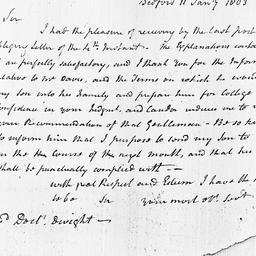 Bedford 11 Jany 1803
Sir
I had the pleasure of receiving by the last post
obliging letter of the 4th Instant. The Explanations contai
are perfectly satisfactory, and I thank you for the Infor
relative to Mr Davis, and the Terms on which he woul
my son into his Family and prepare him for College
Confidence in your Judgmt. and Candor induces me to
your Recommendation of that Gentleman - But so
to inform him that I purpose to send my Son to
in the Course of the next month, and that his
shall be punctually complied with -
with great Respect and Esteem I have the
to be Sir your most obt. Servt
Doctr. Dwight -